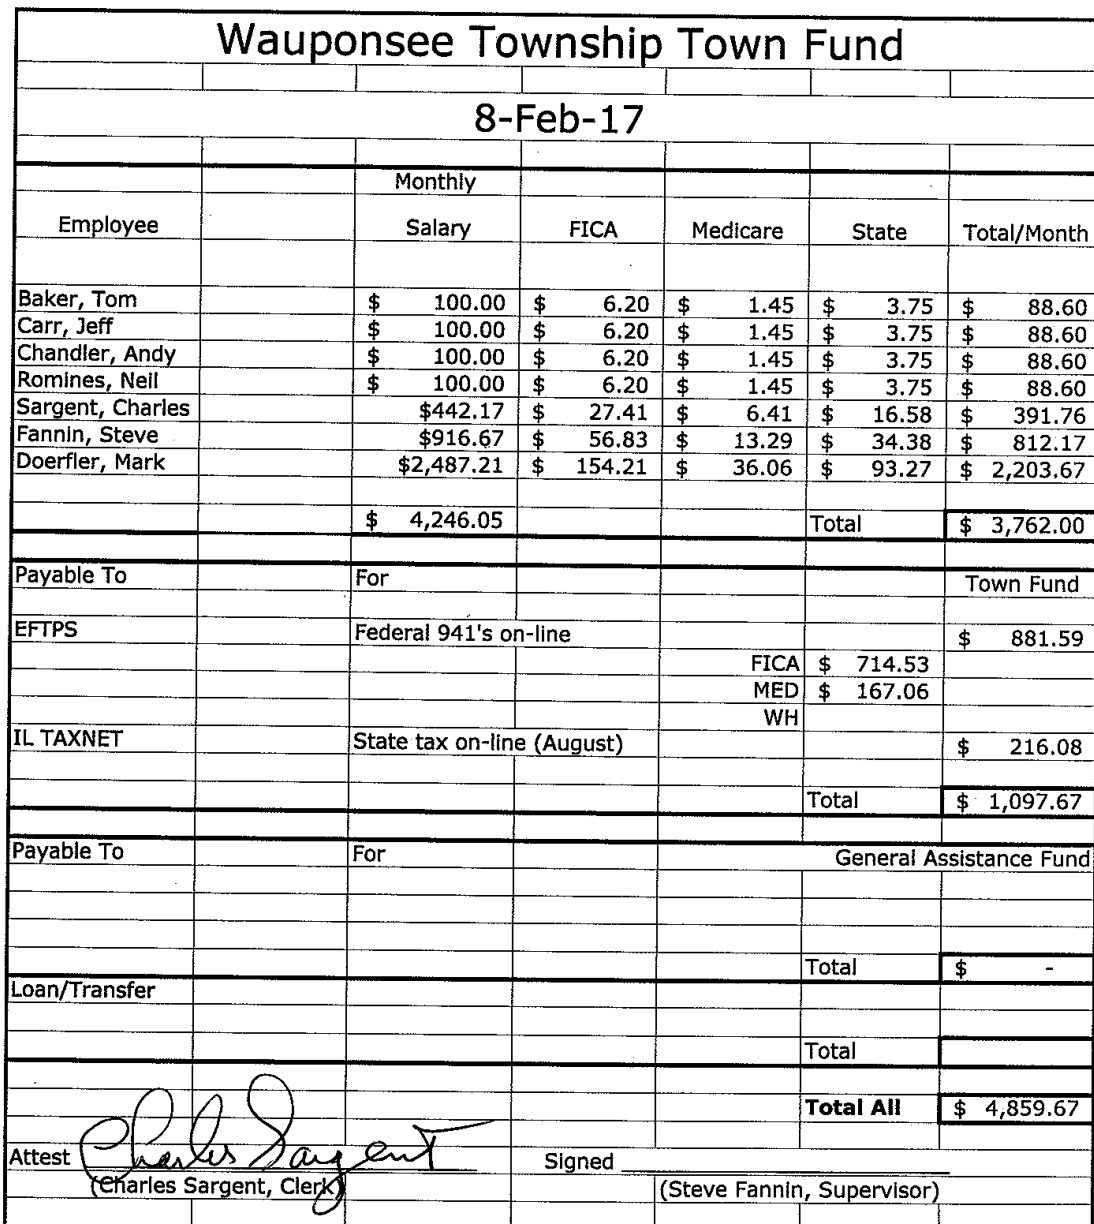 Wauponsee Township Town Fund
8-Feb-17
Monthly
Employee Salary FICA Medicare State Total/Month
Baker, Tom $ 100.00 $ 6.20 $ 1.45 $ 3.75 $ 88.60
Carr, Jeff $ 100.00 $ 6.20 $ 1.45 $ 3.75 $ 88.60
Chandler, Andy $ 100.00 $ 6.20 $ 1.45 $ 3.75 $ 88.60
Romines, Neil $ 100.00 $ 6.20 $ 1.45 $ 3.75 $ 88.60
Sargent, Charles $442.17 $ 27.41 $ 6.41 $ 16.58 $ 391.76
Fannin, Steve $916.67 $ 56.83 $ 13.29 $ 34.38 $ 812.17
Doerfler, Mark $2,487.21 $ 154.21 $ 36.06 $ 93.27 $ 2,203.67
$ 4,246.05 Total $ 3,762.00
Payable To For Town Fund
EFTPS Federal 941's on-line $ 881.59
FICA $ 714.53
MED $ 167.06
WH
IL TAXNET State tax on-line (August) $ 216.08
Total $ 1,097.67
Payable To For General Assistance Fund
Total $ -
Loan/Transfer
Total
Total All $ 4,859.67
Attest Charles Sargent Signed
(Charles Sargent, Clerk) (Steve Fannin, Supervisor)